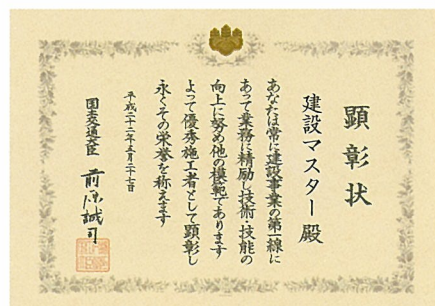 顕彰状
建設マスター殿
あなたは常に建設事業の第一線に
あって業務に精励し技術・技能の
向上に努め他の模範であります
よって優秀施工者として顕彰し
永くその栄誉を称えます
平成二十二年五月二十七日
国土交通大臣 前原誠司